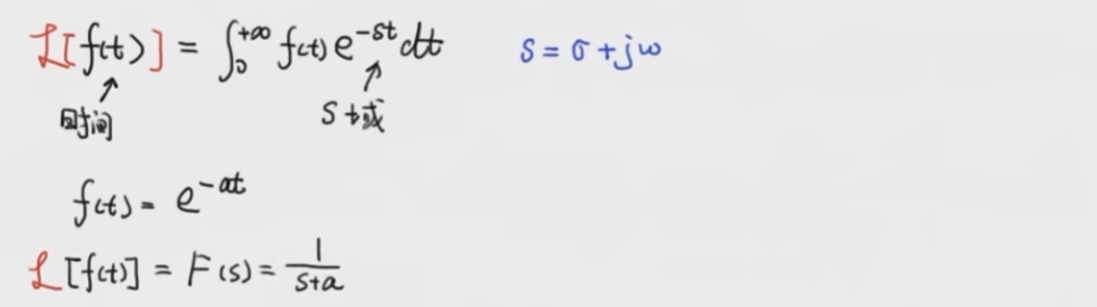 ℒ[f(t)] = ∫₀^{+∞} f(t) e^{-st} dt   s = σ + jω
时间   S域
f(t) = e^{-at}
ℒ[f(t)] = F(s) = \frac{1}{s+a}